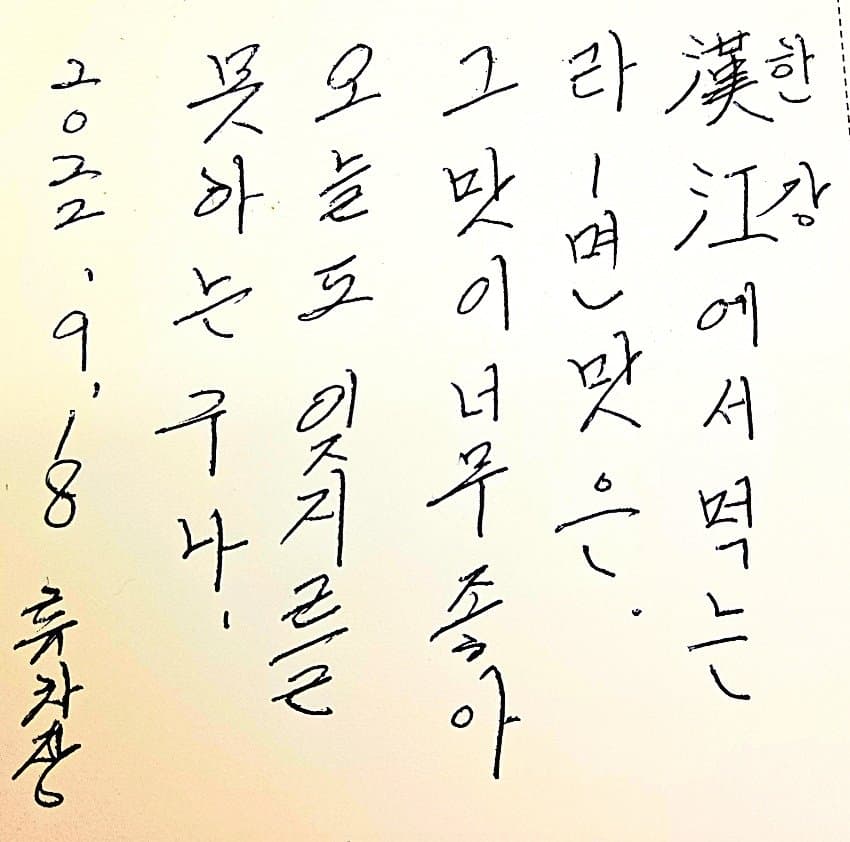 漢한江강에서먹는
라-면맛은.
그맛이너무좋아
오늘도잊지를
못하는구나.
2022.9.18 류차장